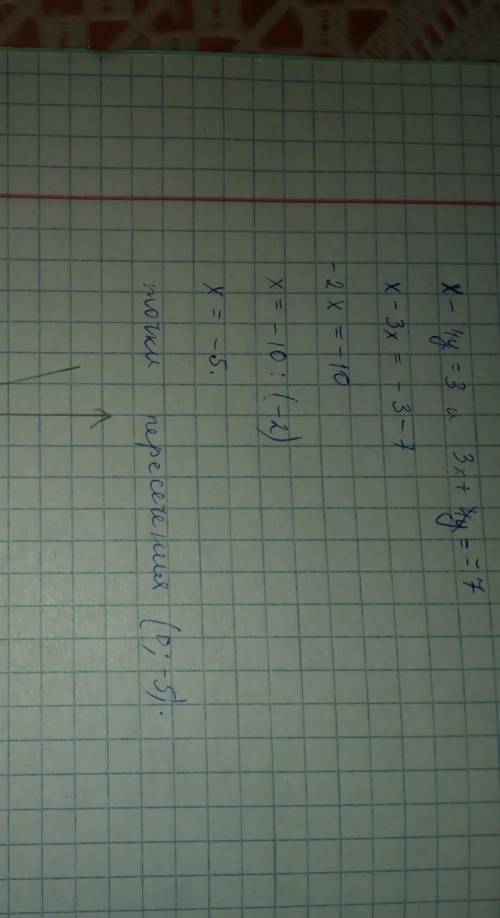 x - y = 3 и 3x + y = -7
x - 3x = -3-7
-2x = -10
x = -10 : (-2)
x = -5.
точки пересечения (0; -5).